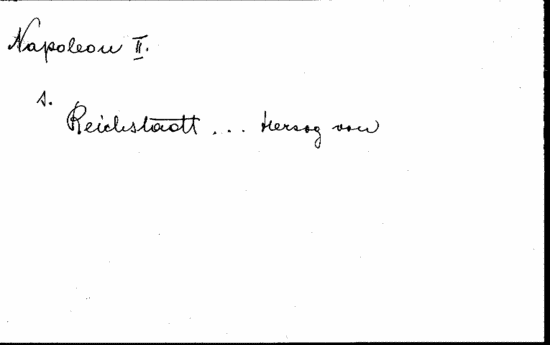 Napoleon II.
s.
Reichstadt ... Herzog von